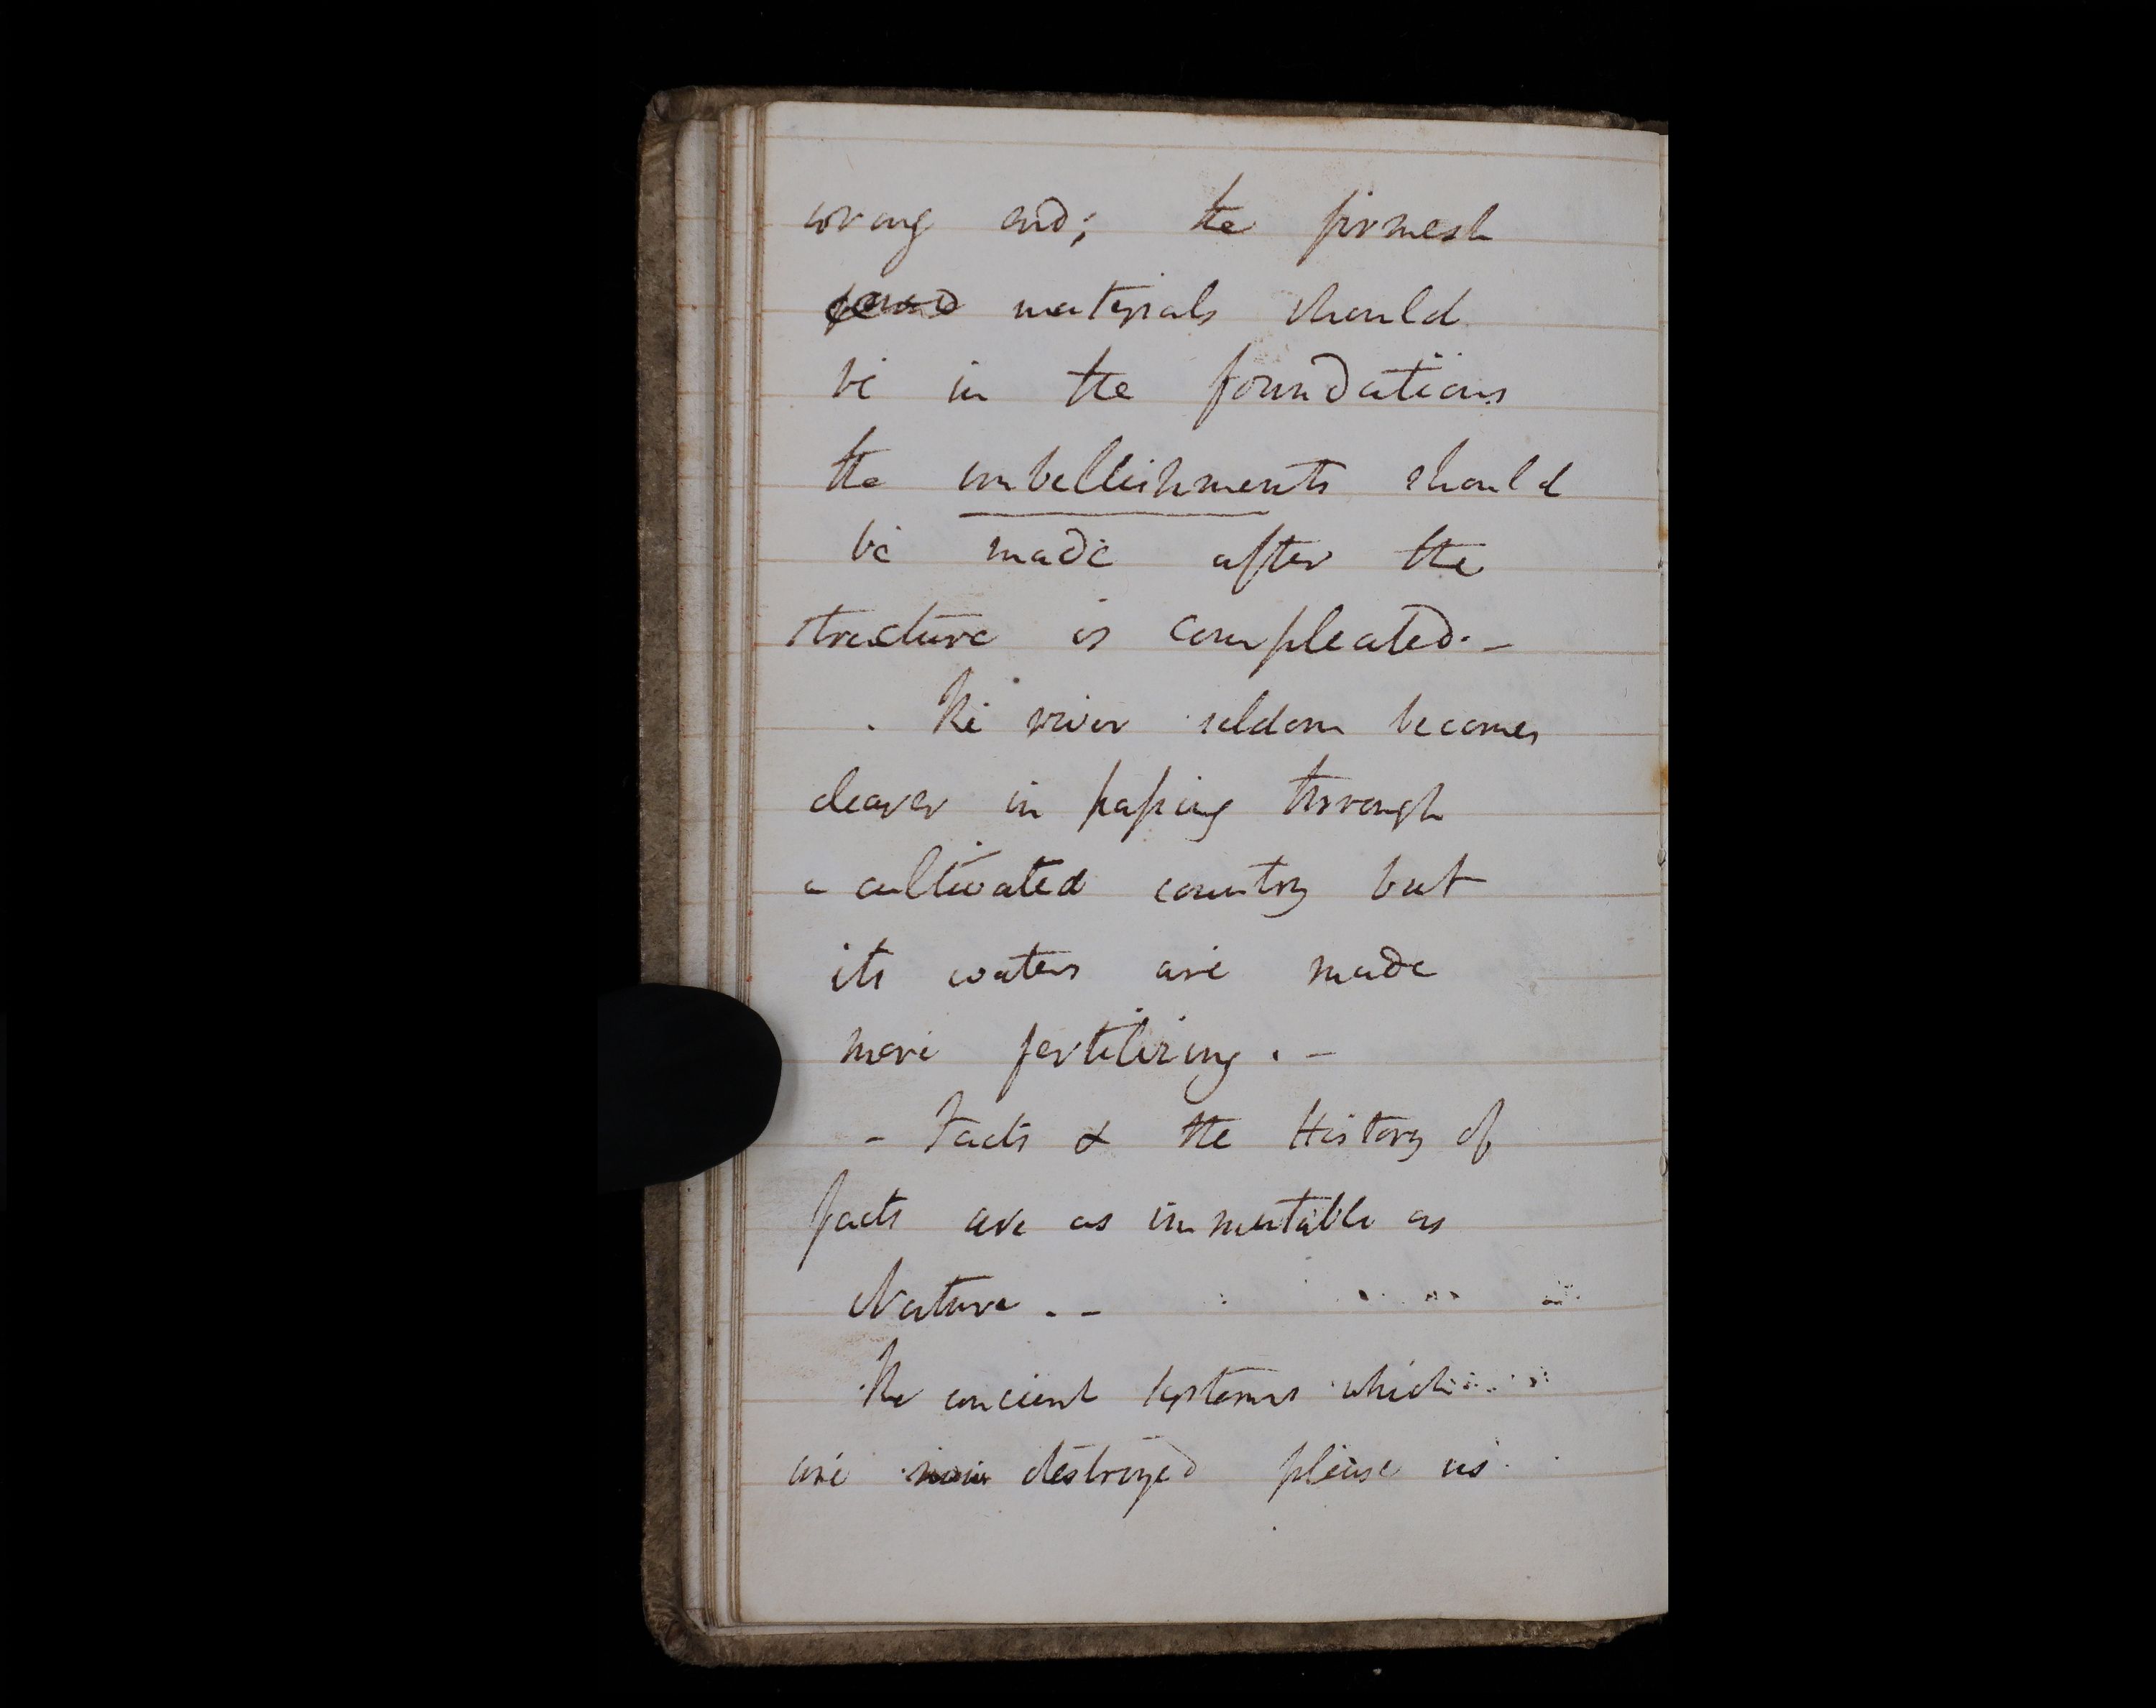 wrong end; the firmest
materials should
be in the foundations
the embellishments should
be made after the
structure is compleated. -
The river seldom becomes
clearer in passing through
a cultivated country but
its waters are made
more fertilizing. -
- Facts & the History of
facts are as immutable as
Nature. -
The ancient systems which
are now destroyed please us